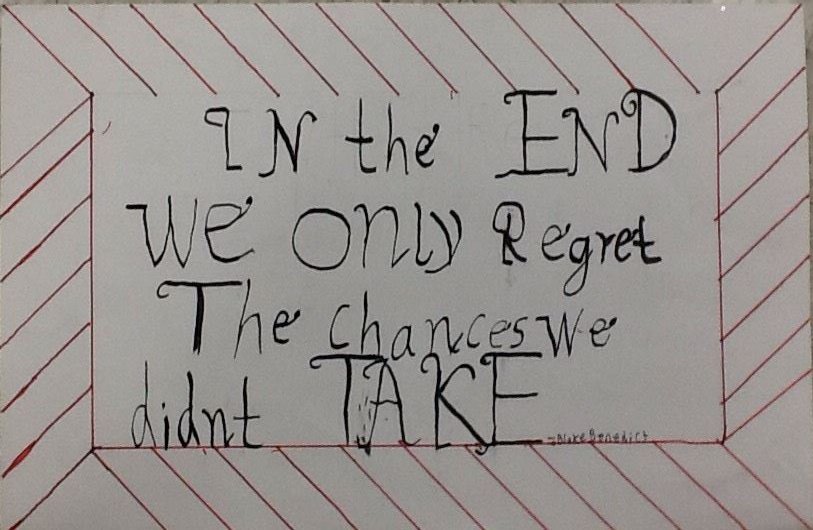 IN the END
We Only Regret
The chances we
didnt TAKE